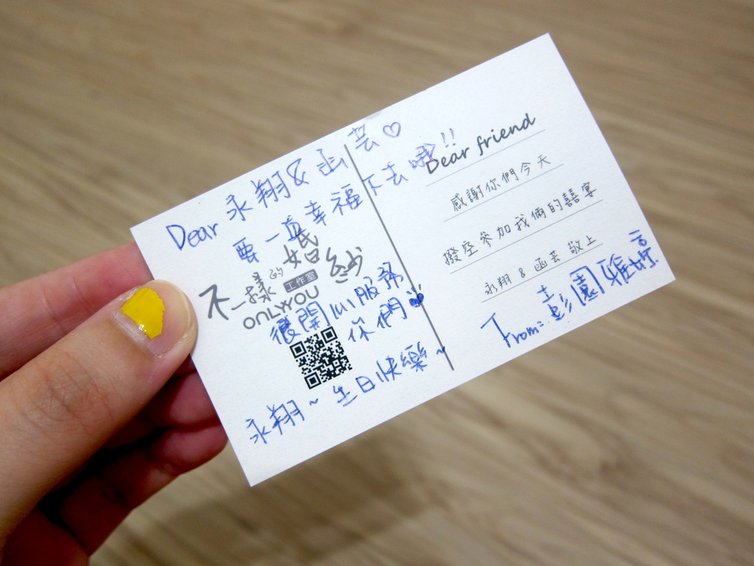 Dear 永翔 & 函芸♡
要一直幸福下去哦!!
不一樣的婚紗
工作室
ONLYYOU
很開心服務
你們
永翔~生日快樂~
Dear friend
感謝你們今天
撥空參加我倆的囍宴
永翔 & 函芸 敬上
From: 彭園雅婷